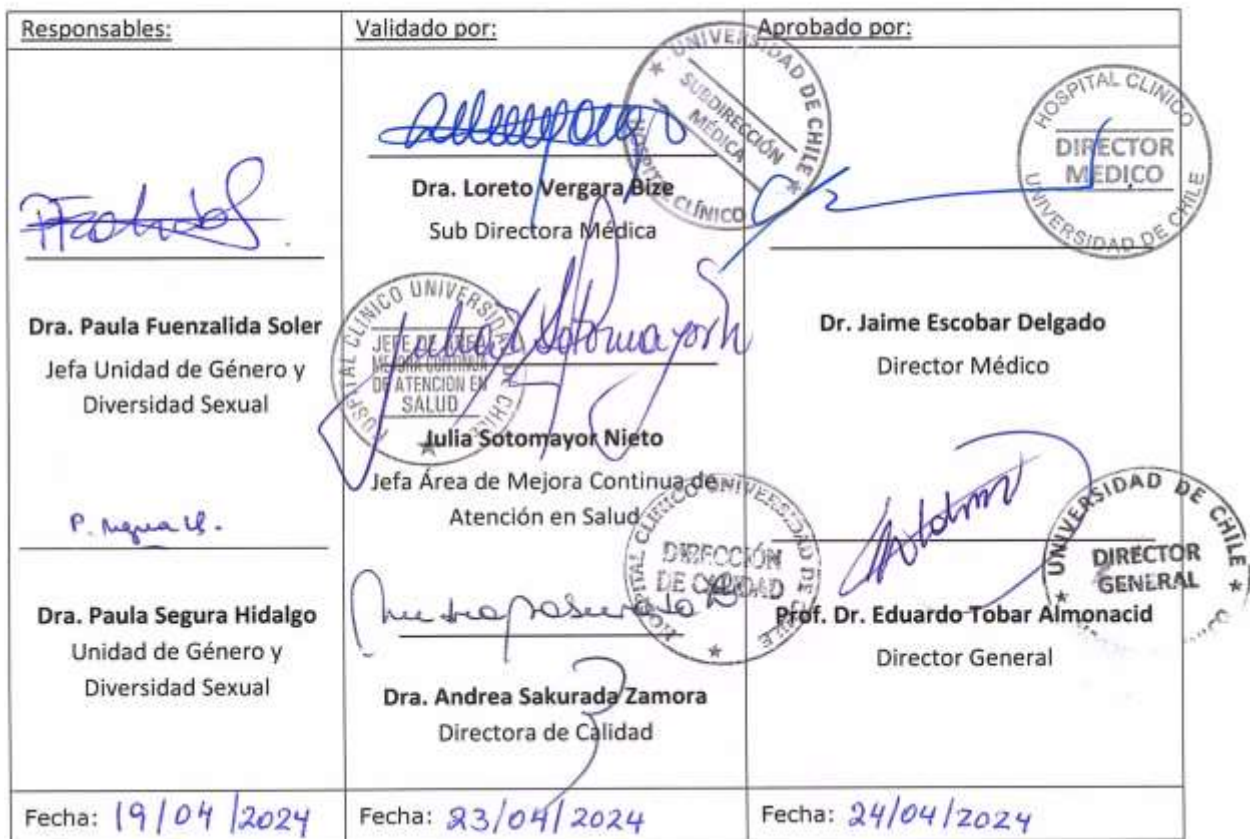 Responsables:
Dra. Paula Fuenzalida Soler
Jefa Unidad de Género y
Diversidad Sexual
Dra. Paula Segura Hidalgo
Unidad de Género y
Diversidad Sexual
Fecha: 19/04/2024
Validado por:
UNIVERSIDAD DE CHILE
SUBDIRECCIÓN
MÉDICA
HOSPITAL CLÍNICO
Dra. Loreto Vergara Bize
Sub Directora Médica
HOSPITAL CLINICO UNIVERSIDAD DE CHILE
JEFE DE AREA
MEJORA CONTINUA
DE ATENCION EN
SALUD
Julia Sotomayor
Julia Sotomayor Nieto
Jefa Área de Mejora Continua de
Atención en Salud
HOSPITAL CLINICO UNIVERSIDAD DE CHILE
DIRECCIÓN
DE CALIDAD
Dra. Andrea Sakurada Zamora
Directora de Calidad
Fecha: 23/04/2024
Aprobado por:
HOSPITAL CLINICO
DIRECTOR
MEDICO
UNIVERSIDAD DE CHILE
Dr. Jaime Escobar Delgado
Director Médico
UNIVERSIDAD DE CHILE
DIRECTOR
GENERAL
Prof. Dr. Eduardo Tobar Almonacid
Director General
Fecha: 24/04/2024